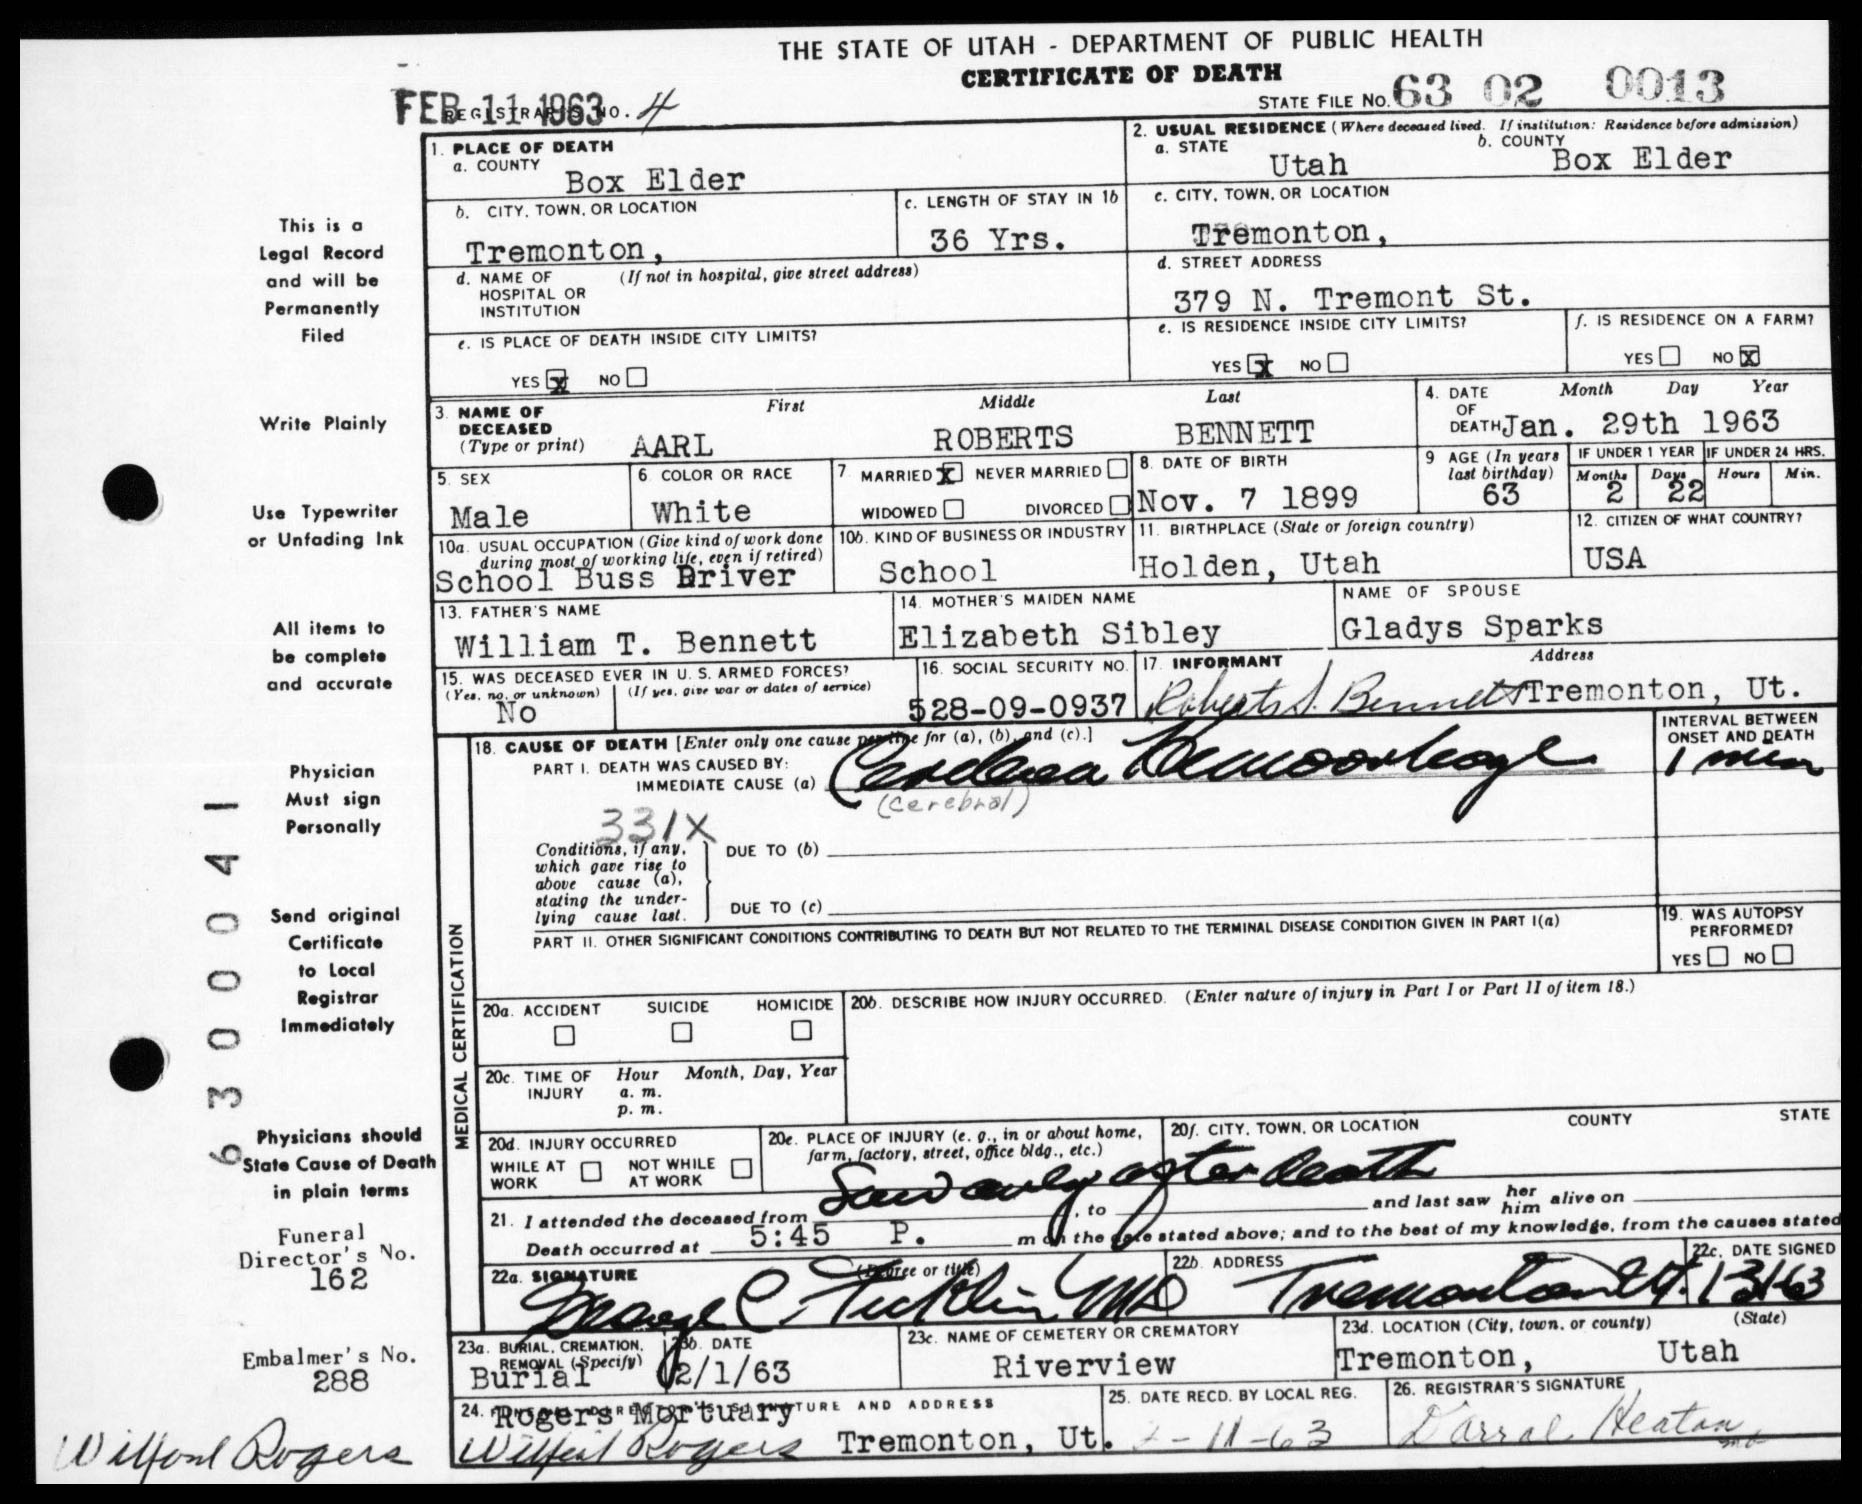 THE STATE OF UTAH - DEPARTMENT OF PUBLIC HEALTH
CERTIFICATE OF DEATH
STATE FILE NO. 63 02 0013
FEB 11 1963
REGISTRAR'S NO. 4
1. PLACE OF DEATH
a. COUNTY
Box Elder
2. USUAL RESIDENCE (Where deceased lived. If institution: Residence before admission)
a. STATE
Utah
b. COUNTY
Box Elder
b. CITY, TOWN, OR LOCATION
Tremonton,
c. LENGTH OF STAY IN 1b
36 Yrs.
c. CITY, TOWN, OR LOCATION
Tremonton,
d. NAME OF HOSPITAL OR INSTITUTION
(If not in hospital, give street address)
d. STREET ADDRESS
379 N. Tremont St.
e. IS PLACE OF DEATH INSIDE CITY LIMITS?
YES X NO
e. IS RESIDENCE INSIDE CITY LIMITS?
YES X NO
f. IS RESIDENCE ON A FARM?
YES NO X
3. NAME OF DECEASED
(Type or print)
First Middle Last
AARL ROBERTS BENNETT
4. DATE OF DEATH
Month Day Year
Jan. 29th 1963
5. SEX
Male
6. COLOR OR RACE
White
7. MARRIED X NEVER MARRIED
WIDOWED DIVORCED
8. DATE OF BIRTH
Nov. 7 1899
9 AGE (In years last birthday)
63
IF UNDER 1 YEAR
Months Days
2 22
IF UNDER 24 HRS.
Hours Min.
10a. USUAL OCCUPATION (Give kind of work done during most of working life, even if retired)
School Buss Driver
10b. KIND OF BUSINESS OR INDUSTRY
School
11. BIRTHPLACE (State or foreign country)
Holden, Utah
12. CITIZEN OF WHAT COUNTRY?
USA
13. FATHER'S NAME
William T. Bennett
14. MOTHER'S MAIDEN NAME
Elizabeth Sibley
NAME OF SPOUSE
Gladys Sparks
15. WAS DECEASED EVER IN U. S. ARMED FORCES?
(Yes, no, or unknown) (If yes, give war or dates of service)
No
16. SOCIAL SECURITY NO.
528-09-0937
17. INFORMANT Address
Roberts S. Bennett Tremonton, Ut.
MEDICAL CERTIFICATION
18. CAUSE OF DEATH [Enter only one cause per line for (a), (b), and (c).]
PART I. DEATH WAS CAUSED BY:
IMMEDIATE CAUSE (a) Cerebral Hemoorhage
(cerebral)
INTERVAL BETWEEN ONSET AND DEATH
1 min
331X
Conditions, if any, which gave rise to above cause (a), stating the underlying cause last.
DUE TO (b)
DUE TO (c)
PART II. OTHER SIGNIFICANT CONDITIONS CONTRIBUTING TO DEATH BUT NOT RELATED TO THE TERMINAL DISEASE CONDITION GIVEN IN PART I(a)
19. WAS AUTOPSY PERFORMED?
YES NO
20a. ACCIDENT SUICIDE HOMICIDE
20b. DESCRIBE HOW INJURY OCCURRED. (Enter nature of injury in Part I or Part II of item 18.)
20c. TIME OF INJURY
Hour Month, Day, Year
a. m.
p. m.
20d. INJURY OCCURRED
WHILE AT WORK NOT WHILE AT WORK
20e. PLACE OF INJURY (e. g., in or about home, farm, factory, street, office bldg., etc.)
20f. CITY, TOWN, OR LOCATION COUNTY STATE
Saw only after death
21. I attended the deceased from , to and last saw her him alive on
Death occurred at 5:45 P. m on the date stated above; and to the best of my knowledge, from the causes stated
22a. SIGNATURE (Degree or title)
George C. Ficklin MD
22b. ADDRESS
Tremonton Ut.
22c. DATE SIGNED
1 31 63
23a. BURIAL, CREMATION, REMOVAL (Specify)
Burial
23b. DATE
2/1/63
23c. NAME OF CEMETERY OR CREMATORY
Riverview
23d. LOCATION (City, town, or county) (State)
Tremonton, Utah
24. FUNERAL DIRECTOR'S SIGNATURE AND ADDRESS
Rogers Mortuary
Wilford Rogers Tremonton, Ut.
25. DATE RECD. BY LOCAL REG.
2-11-63
26. REGISTRAR'S SIGNATURE
Darral Heaton
This is a
Legal Record
and will be
Permanently
Filed
Write Plainly
Use Typewriter
or Unfading Ink
All items to
be complete
and accurate
Physician
Must sign
Personally
Send original
Certificate
to Local
Registrar
Immediately
Physicians should
State Cause of Death
in plain terms
Funeral
Director's No.
162
Embalmer's No.
288
Wilford Rogers
6300041